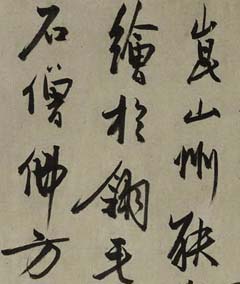 崑山州
繪於毛
石僧佛方